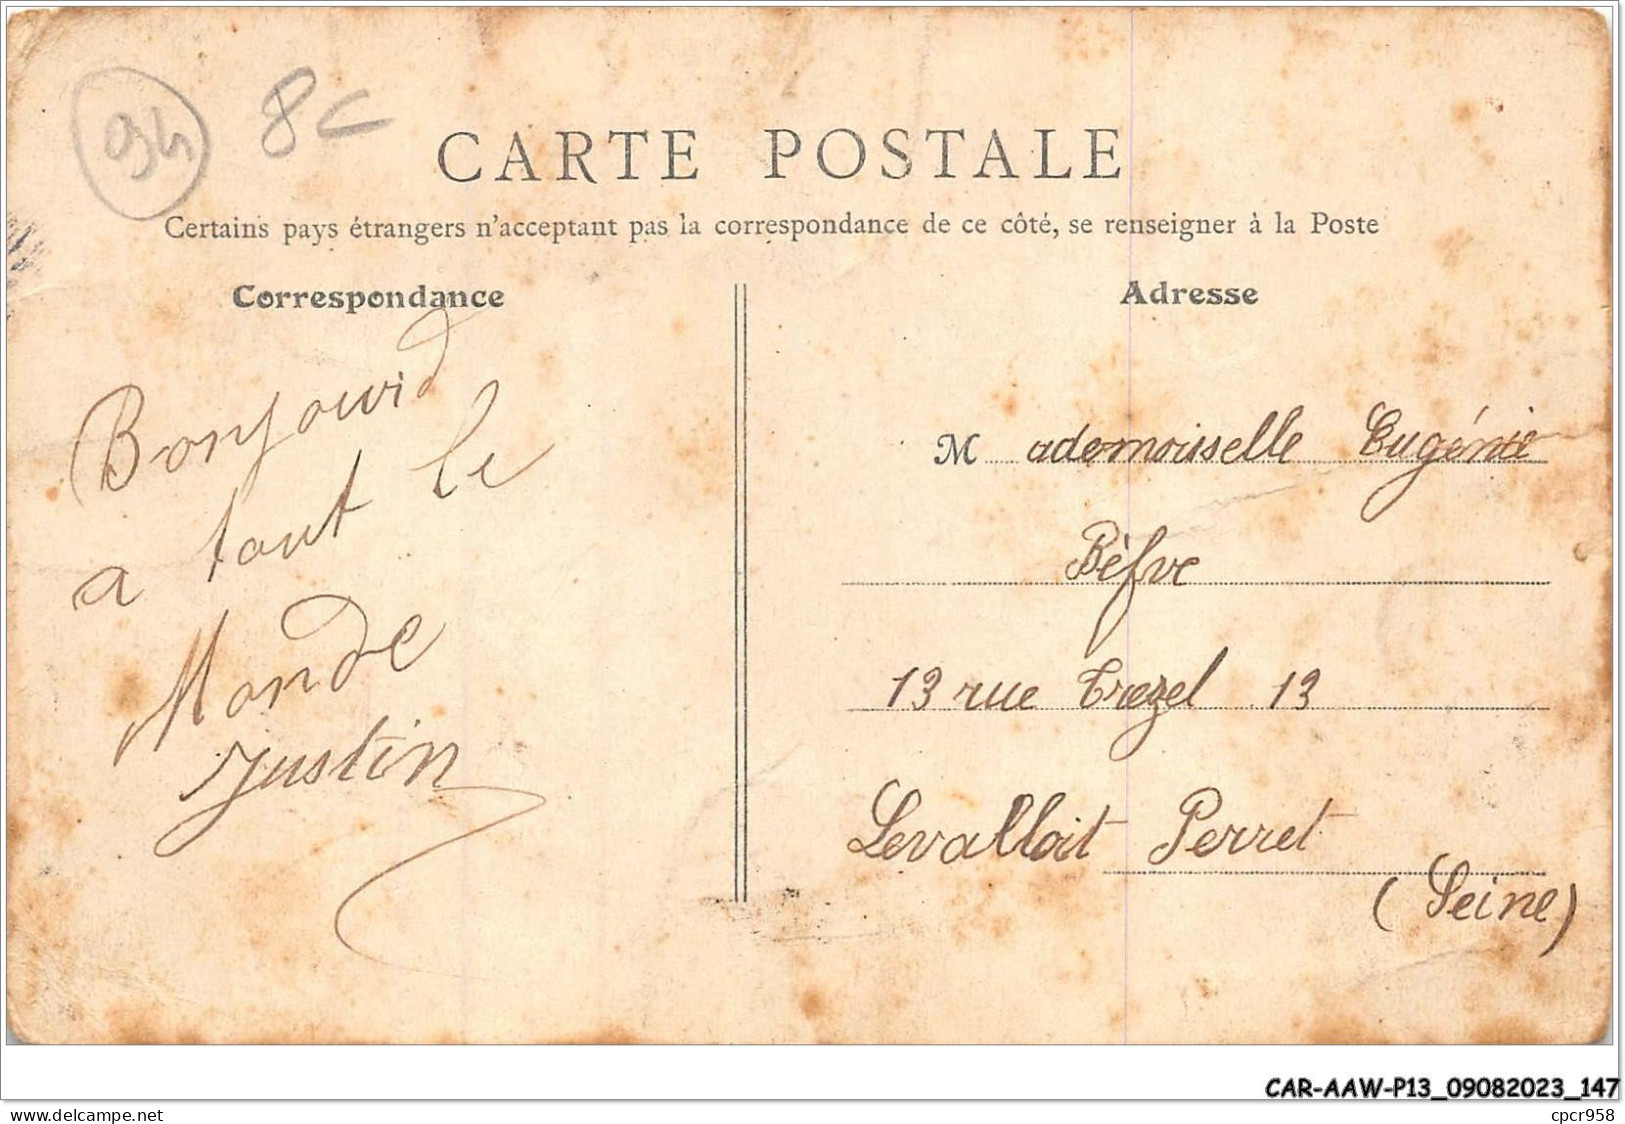 94 8c
CARTE POSTALE
Certains pays étrangers n'acceptant pas la correspondance de ce côté, se renseigner à la Poste
Correspondance
Bonjourd
a tout le
Monde
Justin
Adresse
Mademoiselle Eugénie
Bèfve
13 rue Trezel 13
Levalloit Perret
(Seine)
CAR-AAW-P13_09082023_147
delcampe.net
cpcr958